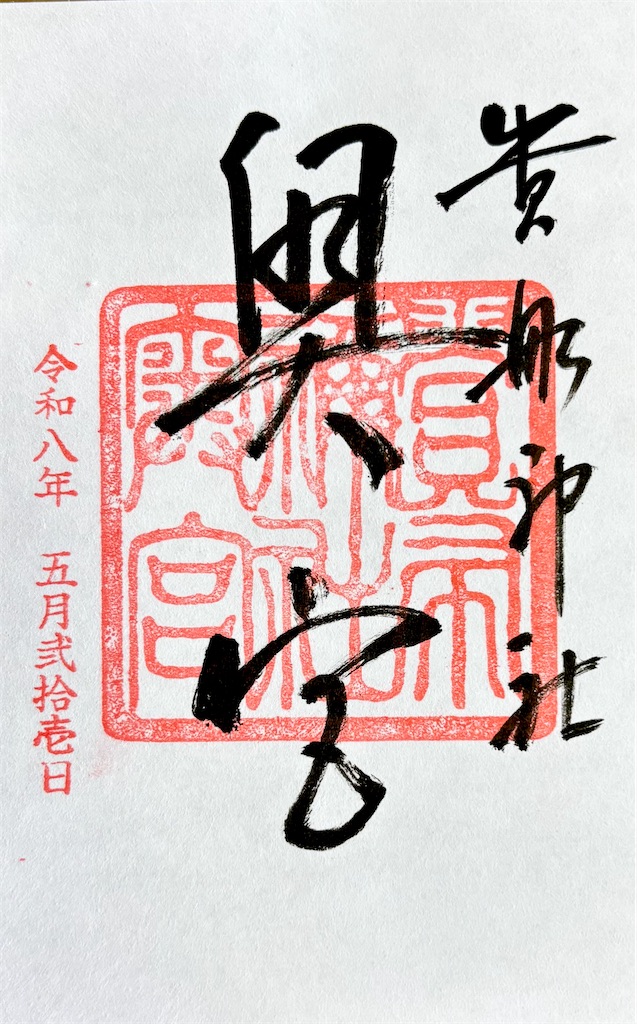 貴船神社
奥宮
貴布
禰社
奥宮
令和八年 五月弐拾壱日